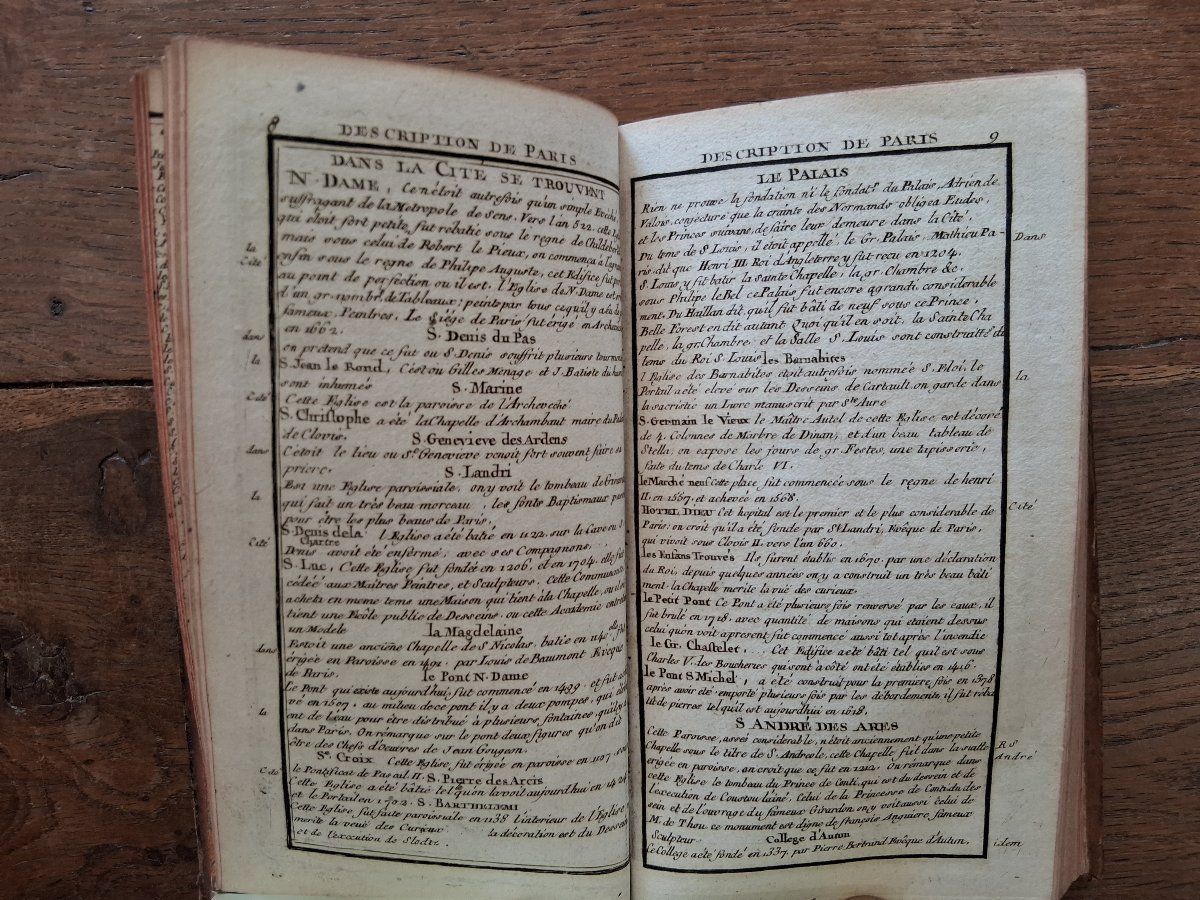 8
DESCRIPTION DE PARIS
DANS LA CITÉ SE TROUVENT
N. DAME, Ce n'étoit autrefois qu'un simple Evêché,
suffragant de la Metropole de Sens, Vers l'an 522. cette
qui étoit fort petite, fut rebatie sous le regne de Childeb
mais sous celui de Robert le Pieux, on commença à l'agra
la
Cité
enfin sous le regne de Philipe Auguste, cet Edifice fut
au point de perfection ou il est. l'Eglise de N. Dame est
d'un gr. nomb. de Tableaux; peinte par tous ce qu'il y a eu de
fameux Peintres. Le siége de Paris fut érigé en Archev
dans
en 1662.
S. Denis du Pas
on prétend que ce fut ou S. Denis souffrit plusieurs tourmen
la
S. Jean le Rond, C'est ou Gilles Ménage et J. Batiste du
sont inhumés
S. Marine
Cité
Cette Eglise est la paroisse de l'Archevêché
S. Christophe a été la Chapelle d'Archambaut maire du Palais
de Clovis.
S. Genevieve des Ardens
dans
C'étoit le lieu ou Ste Genevieve venoit fort souvent faire sa
priere.
S. Landri
Est une Eglise paroissiale, on y voit le tombeau de Girard
la
qui fait un très beau morceau, les fonts Baptismaux
pour être les plus beaux de Paris.
S. Denis de la Chartre
l'Eglise a été batie en 1122. sur la Cave ou S.
Cité
Denis avoit été enfermé, avec ses Compagnons.
S. Luc, Cette Eglise fut fondée en 1206. et en 1704. elle fut
cédéé aux Maitres Peintres, et Sculpteurs, cette Communauté
acheta en meme tems une Maison qui tient à la Chapelle, ou
tient une Ecôle public de Desseins, ou cette Academie entretien
un Modele
la Magdelaine
dans
Estoit une anciéne Chapelle de S. Nicolas, batie en 140
érigée en Paroisse en 1491. par Louis de Beaumont Eveque
de Paris.
le Pont N. Dame
Le Pont qui éxiste aujourd'hui, fut commencé en 1499. et fut
vé en 1507. au milieu de ce pont il y a deux pompes, qui
la
ent de l'eau pour être distribué à plusieurs fontaines, qu'il y
dans Paris. On rémarque sur le pont deux figures qu'on dit
être des Chefs d'Oeuvres de Jean Gougeon.
Ste Croix
Cette Eglise, fut érigée en paroisse en 1107
Cité
le Pontificat de Pascal II.
S. Pierre des Arcis
Cette Eglise a été bâtie tel qu'on la voit aujourd'hui en 1424
et le Portail en 1702.
S. BARTHELEMI
Cette Eglise fut faite paroissiale en 1138 l'interieur de l'Eglise
merite la veuë des Curieux
la décoration est du Dessein
et de l'éxécution de Slodtz.
DESCRIPTION DE PARIS
9
LE PALAIS
Rien ne prouve la fondation ni le fondatr. du Palais, Adrien de
Valois, conjecture que la crainte des Normands obligea Eudes,
et les Princes suivans, de faire leur demeure dans la Cité,
Du tems de S. Louis, il étoit appellé, le Gr. Palais, Mathieu Pa-
Dans
ris dit que Henri III. Roi d'Angleterre y fut recu en 1204.
S. Louis y fit batir la Sainte Chapelle, la gr. Chambre &c.
sous Philipe le Bel ce Palais fut encore agrandi considerable
ment, Du Haillan dit, qu'il fut bâti de neuf sous ce Prince,
Belle Forest en dit autant, Quoi qu'il en soit, la Sainte Cha
pelle, la gr. Chambre, et la Salle S. Louis sont construitté du
tems du Roi S. Louis
les Barnabites
l'Eglise des Barnabites étoit autrefois nommée S. Eloi, le
Portail a été élevé sur les Desseins de Cartault, on garde dans
la
la sacristie un Livre manuscrit par Ste Aure
S. Germain le Vieux le Maître Autel de cette Eglise est décoré
de 4. Colonnes de Marbre de Dinan, et d'un beau tableau de
Stella, on expose les jours de gr. Festes, une tapisserie,
faite du tems de Charle VI.
le Marché neuf cette place fut commencée sous le regne de henri
II. en 1557. et achevée en 1568.
HOTEL DIEU Cet hopital est le premier et le plus considerable de
Cité
Paris; on croit qu'il a été fonde par St Landri, Evêque de Paris,
qui vivoit sous Clovis II. vers l'an 660.
les Enfans Trouvés Ils furent établis en 1670. par une déclaration
du Roi, depuis quelques années on y a construit un très beau bâti
ment. la Chapelle merite la vuë des curieux.
le Petit Pont Ce Pont a été plusieurs fois renversé par les eaux, il
fut brulé en 1718. avec quantité de maisons qui étaient dessus
celui qu'on voit apresent fut commencé aussi tot après l'incendie
le Gr. Chastelet, ... Cet Edifice a été bâti tel qu'il est sous
Charles V. les Boucheries qui sont à côté ont été établies en 1416.
le Pont S. Michel, a été construit pour la première fois en 1378
après avoir été emporté plusieurs fois par les débordements, il fut réba
tit de pierres tel qu'il est aujourd'hui en 1618.
S ANDRÉ DES ARES
Cette Paroisse, assés considerable, n'étoit anciennement qu'une petite
Chapelle sous le titre de S. Andreole, cette Chapelle fut dans la suitte
R S
André
érigée en paroisse, on croit que ce fut en 1212. On rémarque dans
cette Eglise le tombeau du Prince de Conti, qui est du dessein et de
l'execution de Coustou l'ainé, Celui de la Princesse de Conti du des
sein et de l'ouvrage du fameux Girardon, on y voit aussi célui de
M. de Thou, ce monument est digne de françois Anguere, fameux
Sculpteur
College d'Autun
Ce College a été fondé en 1337. par Pierre Bertrand Evêque d'Autun,
idem